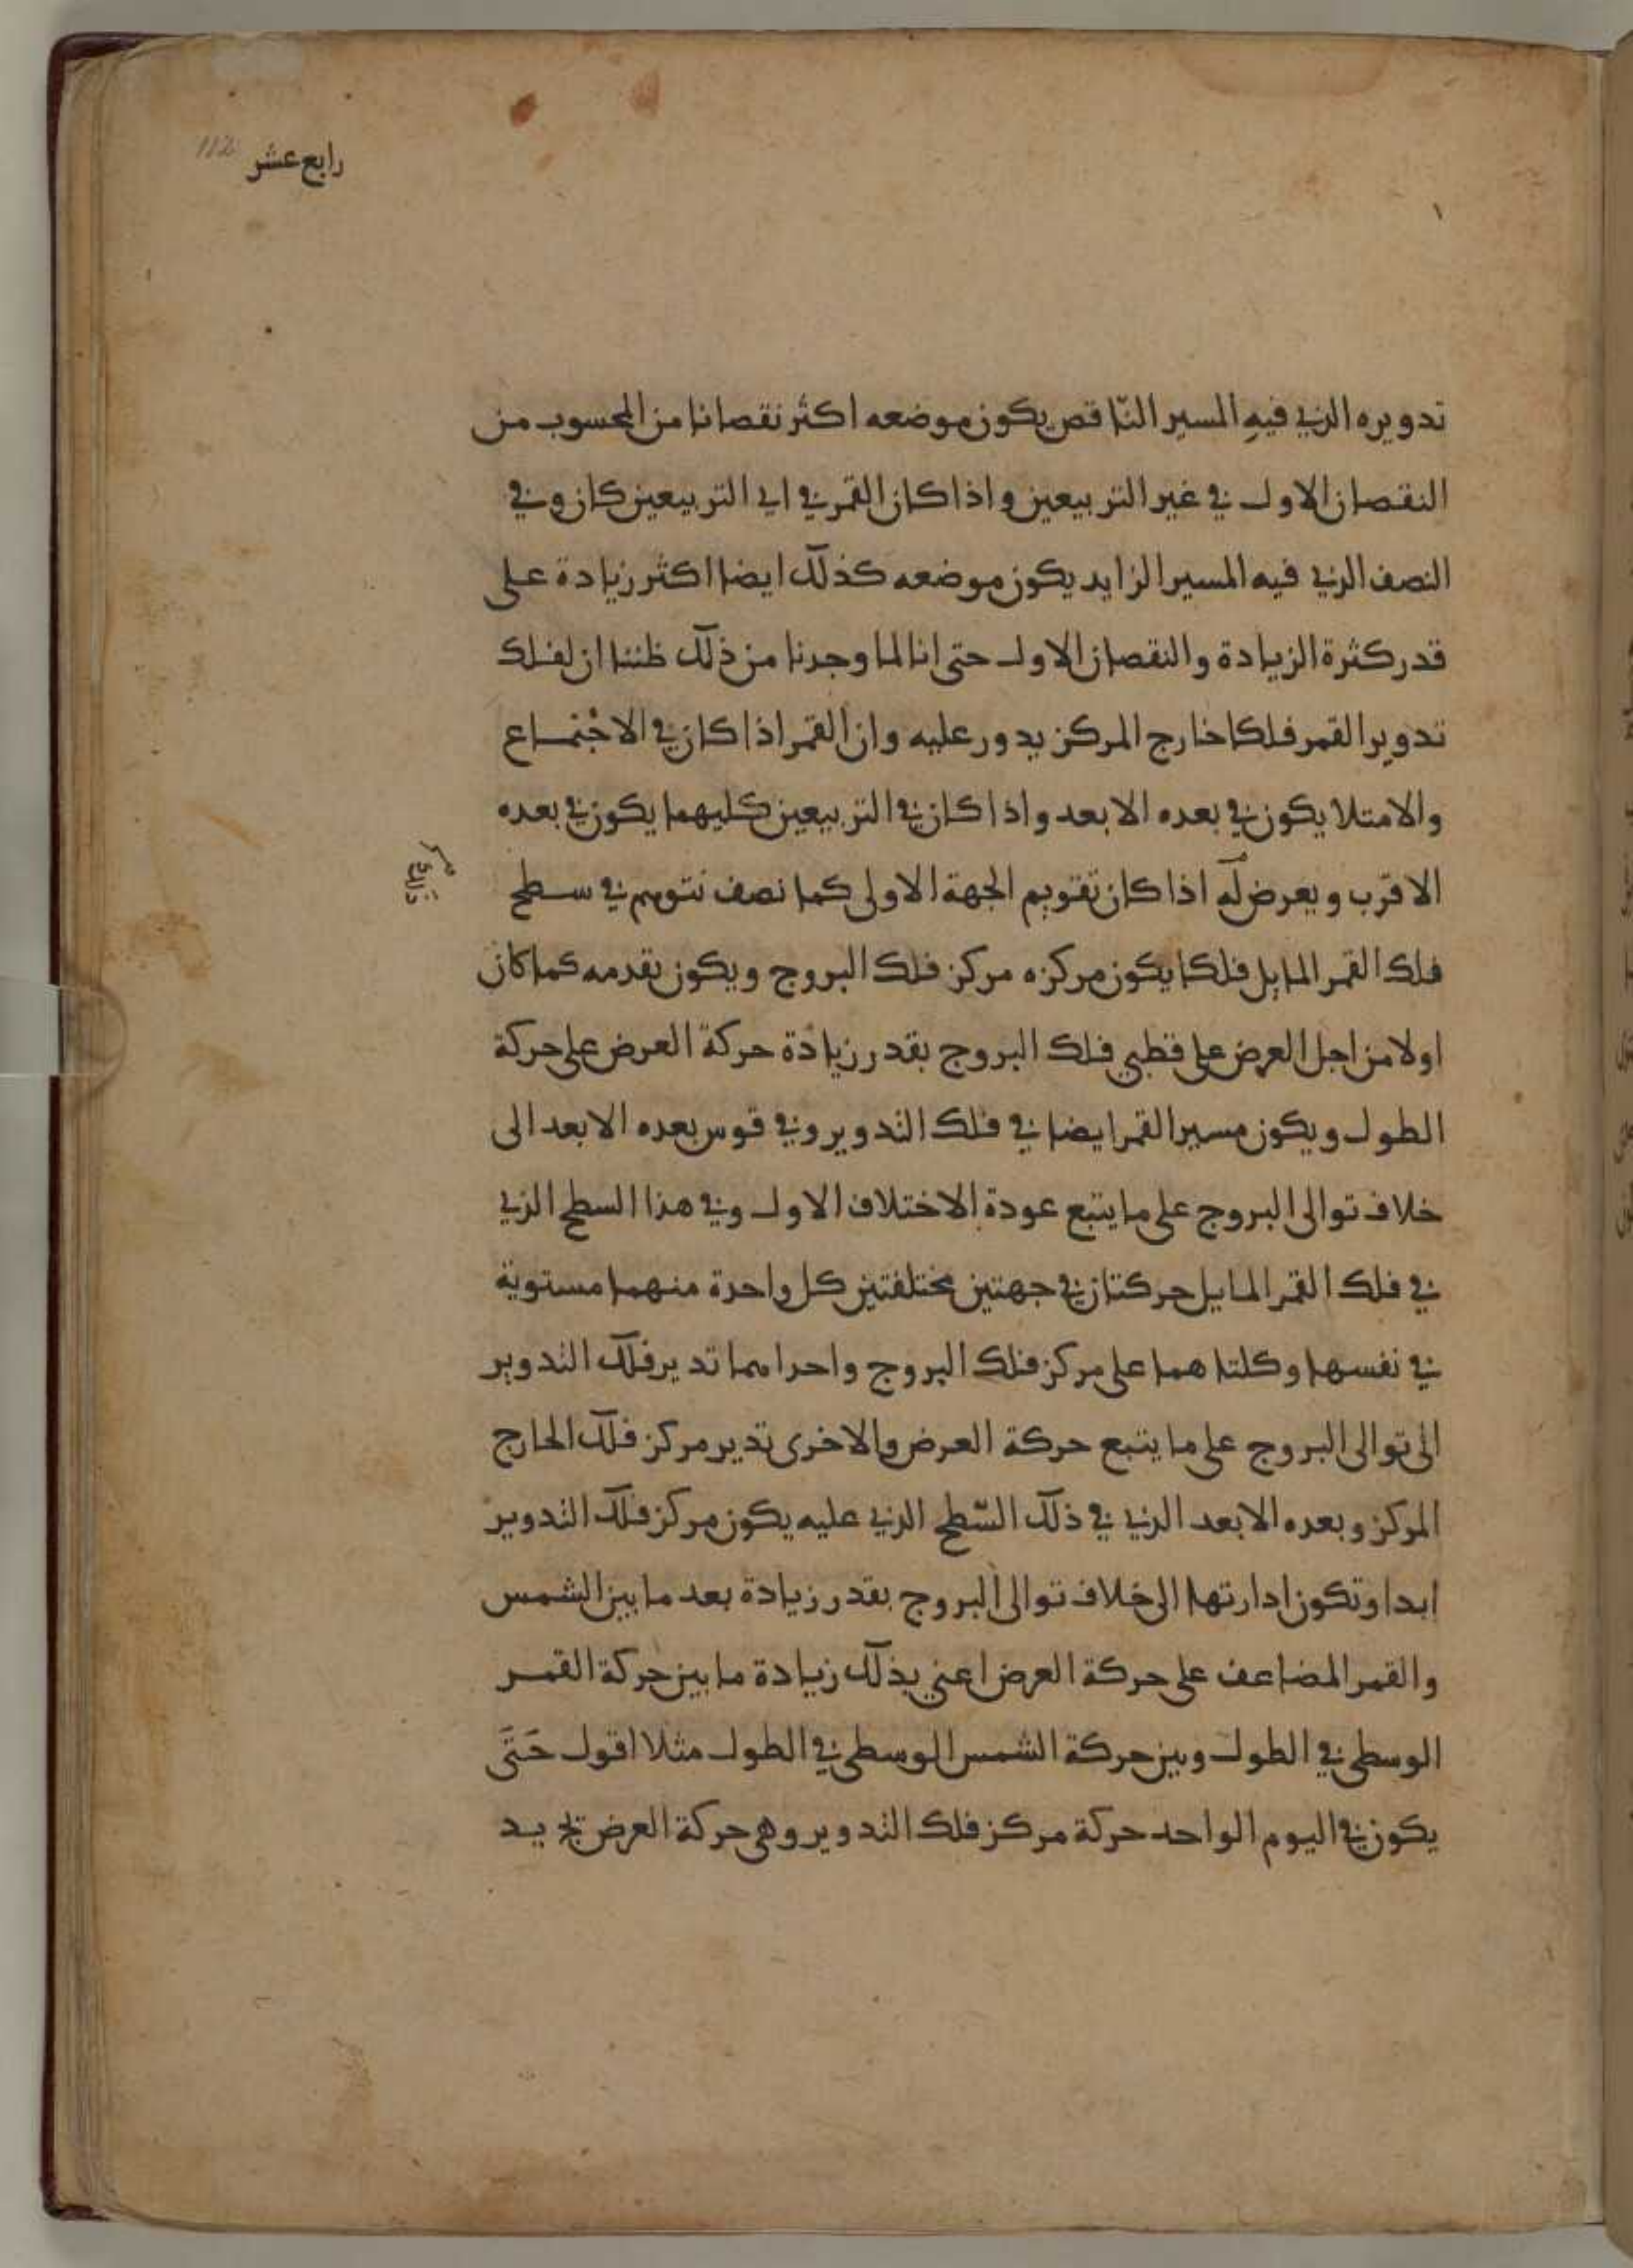 رابع عشر 112
تدويره الذي فيهِ المسير النّاقص يكون موضعه اكثر نقصانا من المحسوب من
النقصان الاول في غير التربيعين واذا كان القمر في اي التربيعين كان وفي
النصف الذي فيه المسير الزايد يكون موضعه كذلك ايضا اكثر زيادة على
قدر كثرة الزيادة والنقصان الاول حتى انا لما وجدنا من ذلك ظننا ان لفلك
تدوير القمر فلكا خارج المركز يدور عليه وان القمر اذا كان في الاجتماع
والامتلا يكون في بعده الابعد واذا كان في التربيعين كليهما يكون في بعده
الاقرب ويعرض له اذا كان تقويم الجهة الاولى كما نصف نتوهم في سطح
فلك القمر المايل فلكا يكون مركزه مركز فلك البروج ويكون تقدمه كما كان
اولا من اجل العرض على قطبي فلك البروج بقدر زيادة حركة العرض على حركة
الطول ويكون مسير القمر ايضا في فلك التدوير وفي قوس بعده الابعد الى
خلاف توالى البروج على ما يتبع عودة الاختلاف الاول وفي هذا السطح الذي
في فلك القمر المايل حركتان في جهتين مختلفتين كل واحدة منهما مستوية
في نفسها وكلتاهما على مركز فلك البروج واحداهما تدير فلك التدوير
الى توالى البروج على ما يتبع حركة العرض والاخرى تدير مركز فلك الخارج
المركز وبعده الابعد الذي في ذلك السّطح الذي عليه يكون مركز فلك التدوير
ابدا وتكون ادارتها الى خلاف توالى البروج بقدر زيادة بعد ما بين الشمس
والقمر المضاعف على حركة العرض اعني بذلك زيادة ما بين حركة القمر
الوسطى في الطول وبين حركة الشمس الوسطى في الطول مثلا اقول حَتَى
يكون في اليوم الواحد حركة مركز فلك التدوير وهى حركة العرض يج يد